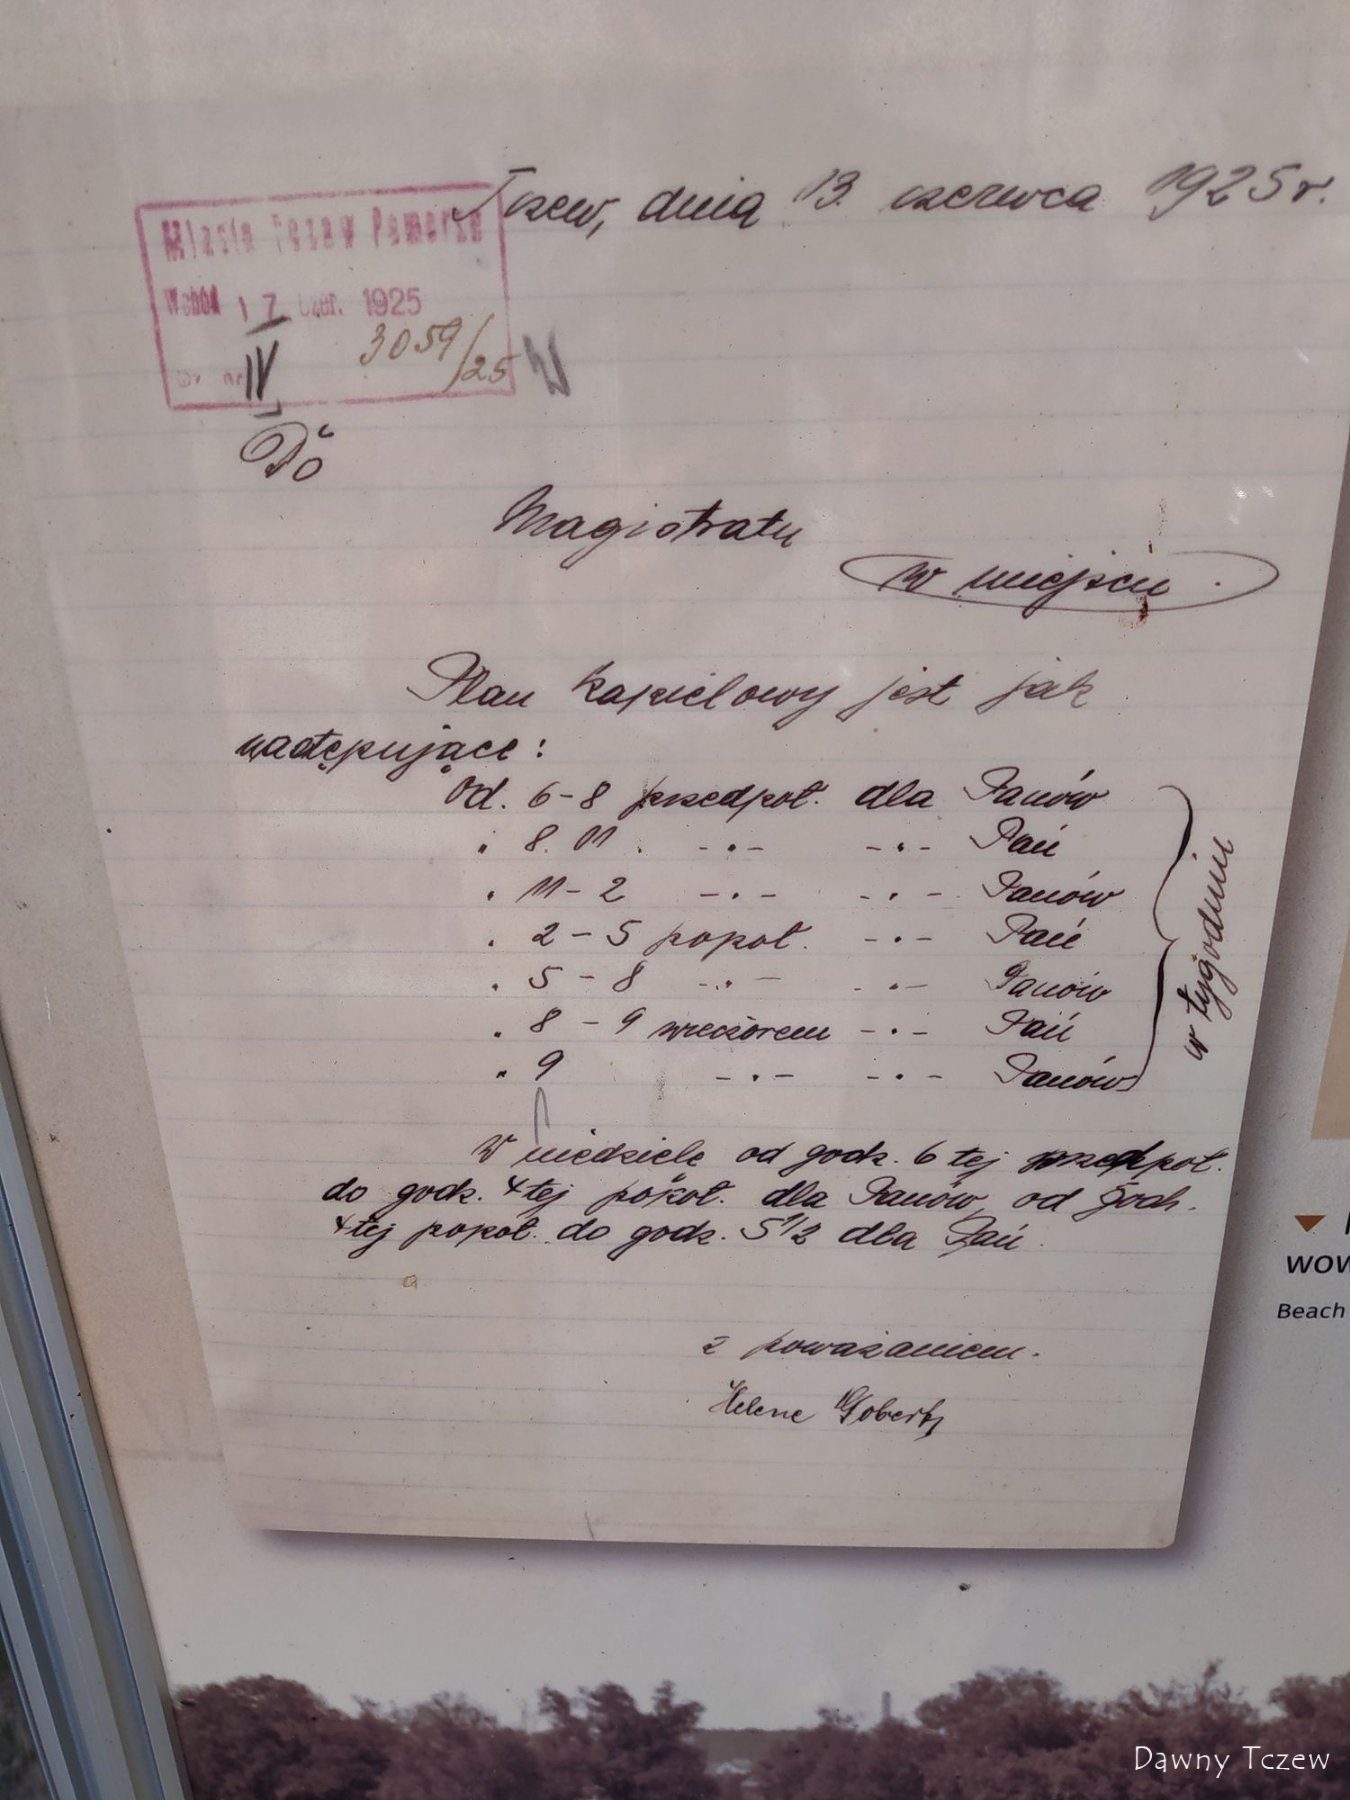 Tczew, dnia 13. czerwca 1925 r.
Miasta Tczew Pomorze
Wchód 17 Czer. 1925
3059/25
IV
Do
Magistratu
w miejscu
Plan kapielowy jest jak
następujące:
Od. 6-8 przedpoł. dla Panów
" 8.11 . -"- -"- Pań
" 11-2 -"- -"- Panów
" 2-5 popoł. -"- Pań
" 5-8 -"- -"- Panów
" 8-9 wieczorem -"- Pań
" 9 -"- -"- Panów
w tygodniu
W niedziele od godz. 6 tej przedpoł.
do godz. 4 tej popoł. dla Panów, od godz.
4 tej popoł. do godz. 5 1/2 dla Pań.
z poważaniem.
Helene Gobertz
Beach
Dawny Tczew